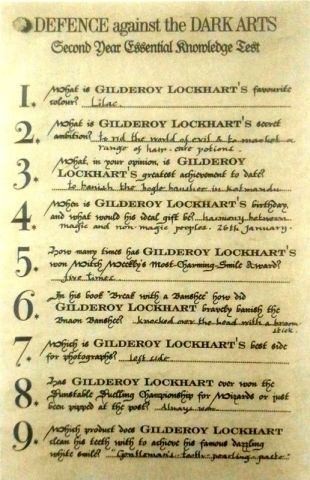 DEFENCE against the DARK ARTS
Second Year Essential Knowledge Test
1. What is GILDEROY LOCKHART'S favourite
colour? Lilac
2. What is GILDEROY LOCKHART'S secret
ambition? to rid the world of evil & to market a
range of hair-care potions.
3. What, in your opinion, is GILDEROY
LOCKHART'S greatest achievement to date?
to banish the banshee in Katmandu
4. When is GILDEROY LOCKHART'S birthday,
and what would his ideal gift be? harmony between
magic and non-magic peoples. 26th January.
5. How many times has GILDEROY LOCKHART'S
won Witch Weekly's Most-Charming-Smile Award?
five times
6. In his book "Break with a Banshee" how did
GILDEROY LOCKHART bravely banish the
Banshee? knocked over the head with a broom
stick.
7. Which is GILDEROY LOCKHART'S best side
for photographs? left side
8. Has GILDEROY LOCKHART ever won the
Dunstable Duelling Championship for Wizards or just
been pipped at the post? Always won
9. Which product does GILDEROY LOCKHART
clean his teeth with to achieve his famous dazzling
white smile? Gentleman's tooth-pearling-paste